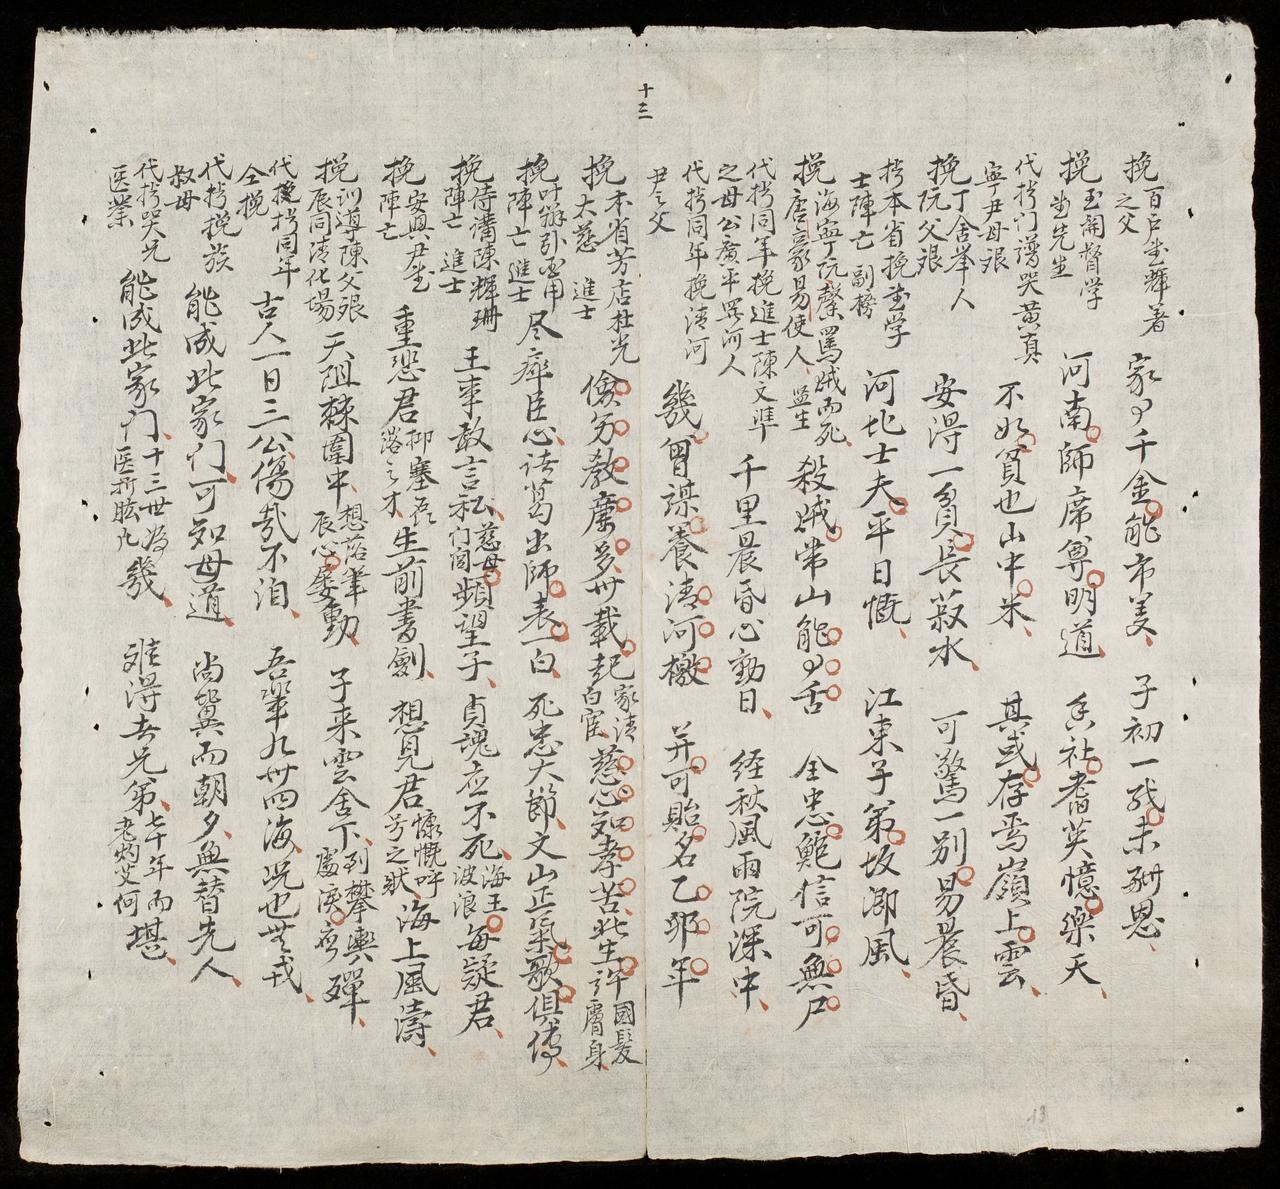 十三
挽百戶堂輝著之父 家有千金能市美 子初一残未酬恩
挽玉開督学尚先生 河南師席尊明道 香社耆英憶樂天
代拵门譜哭黄真寧尹母艰 不如貧也山中米 其或存焉嶺上雲
挽丁舍举人阮父艰 安得一貟長菽水 可驚一別易晨昏
拵本省挽堂学士陣亡副榜 河北士夫平日慨 江東子第故鄉風
挽海寧阮馨罵賊而死唐豪易使人监生 殺賊常山能有舌 全忠鮑信可無尸
代拵同年挽進士陳文準之母公廣平羅河人 千里晨昏心動日 经秋風雨院深中
代拵同年挽清河尹之父 幾曾謀養清河檄 并可貽名乙卯年
挽本省芳店杜光大慈進士 儉勞教廉多卅載起家清白宦 慈心知孝苦此生許國髮膚身
挽叶辦引玉甪陣亡進士 尽瘁臣心诸葛出師表一白 死忠大節文山正氣歌俱傳
挽侍潘陳輝珊陣亡進士 王事敢言私慈母门闾頻望子 貞魂应不死海王波浪每疑君
挽安興尹堂陣亡 重悲君抑塞磊落之才生前書劍 想見君慷慨呼号之狀海上風濤
挽训導陳父艰辰同清化場 天阻棘圍中想落筆辰心屡動 子来雲舍下到攀輿處淚應殫
代挽拵同年仝挽 古人一日三公傷哉不洎 吾輩九卅四海况也無戎
代拵挽族叔母 能成此家门可知母道 尚冀而朝夕無替先人
代拵哭兄医業 能成此家门十三世為医折肱九幾 难得去兄第七十年而老灼艾何堪
13